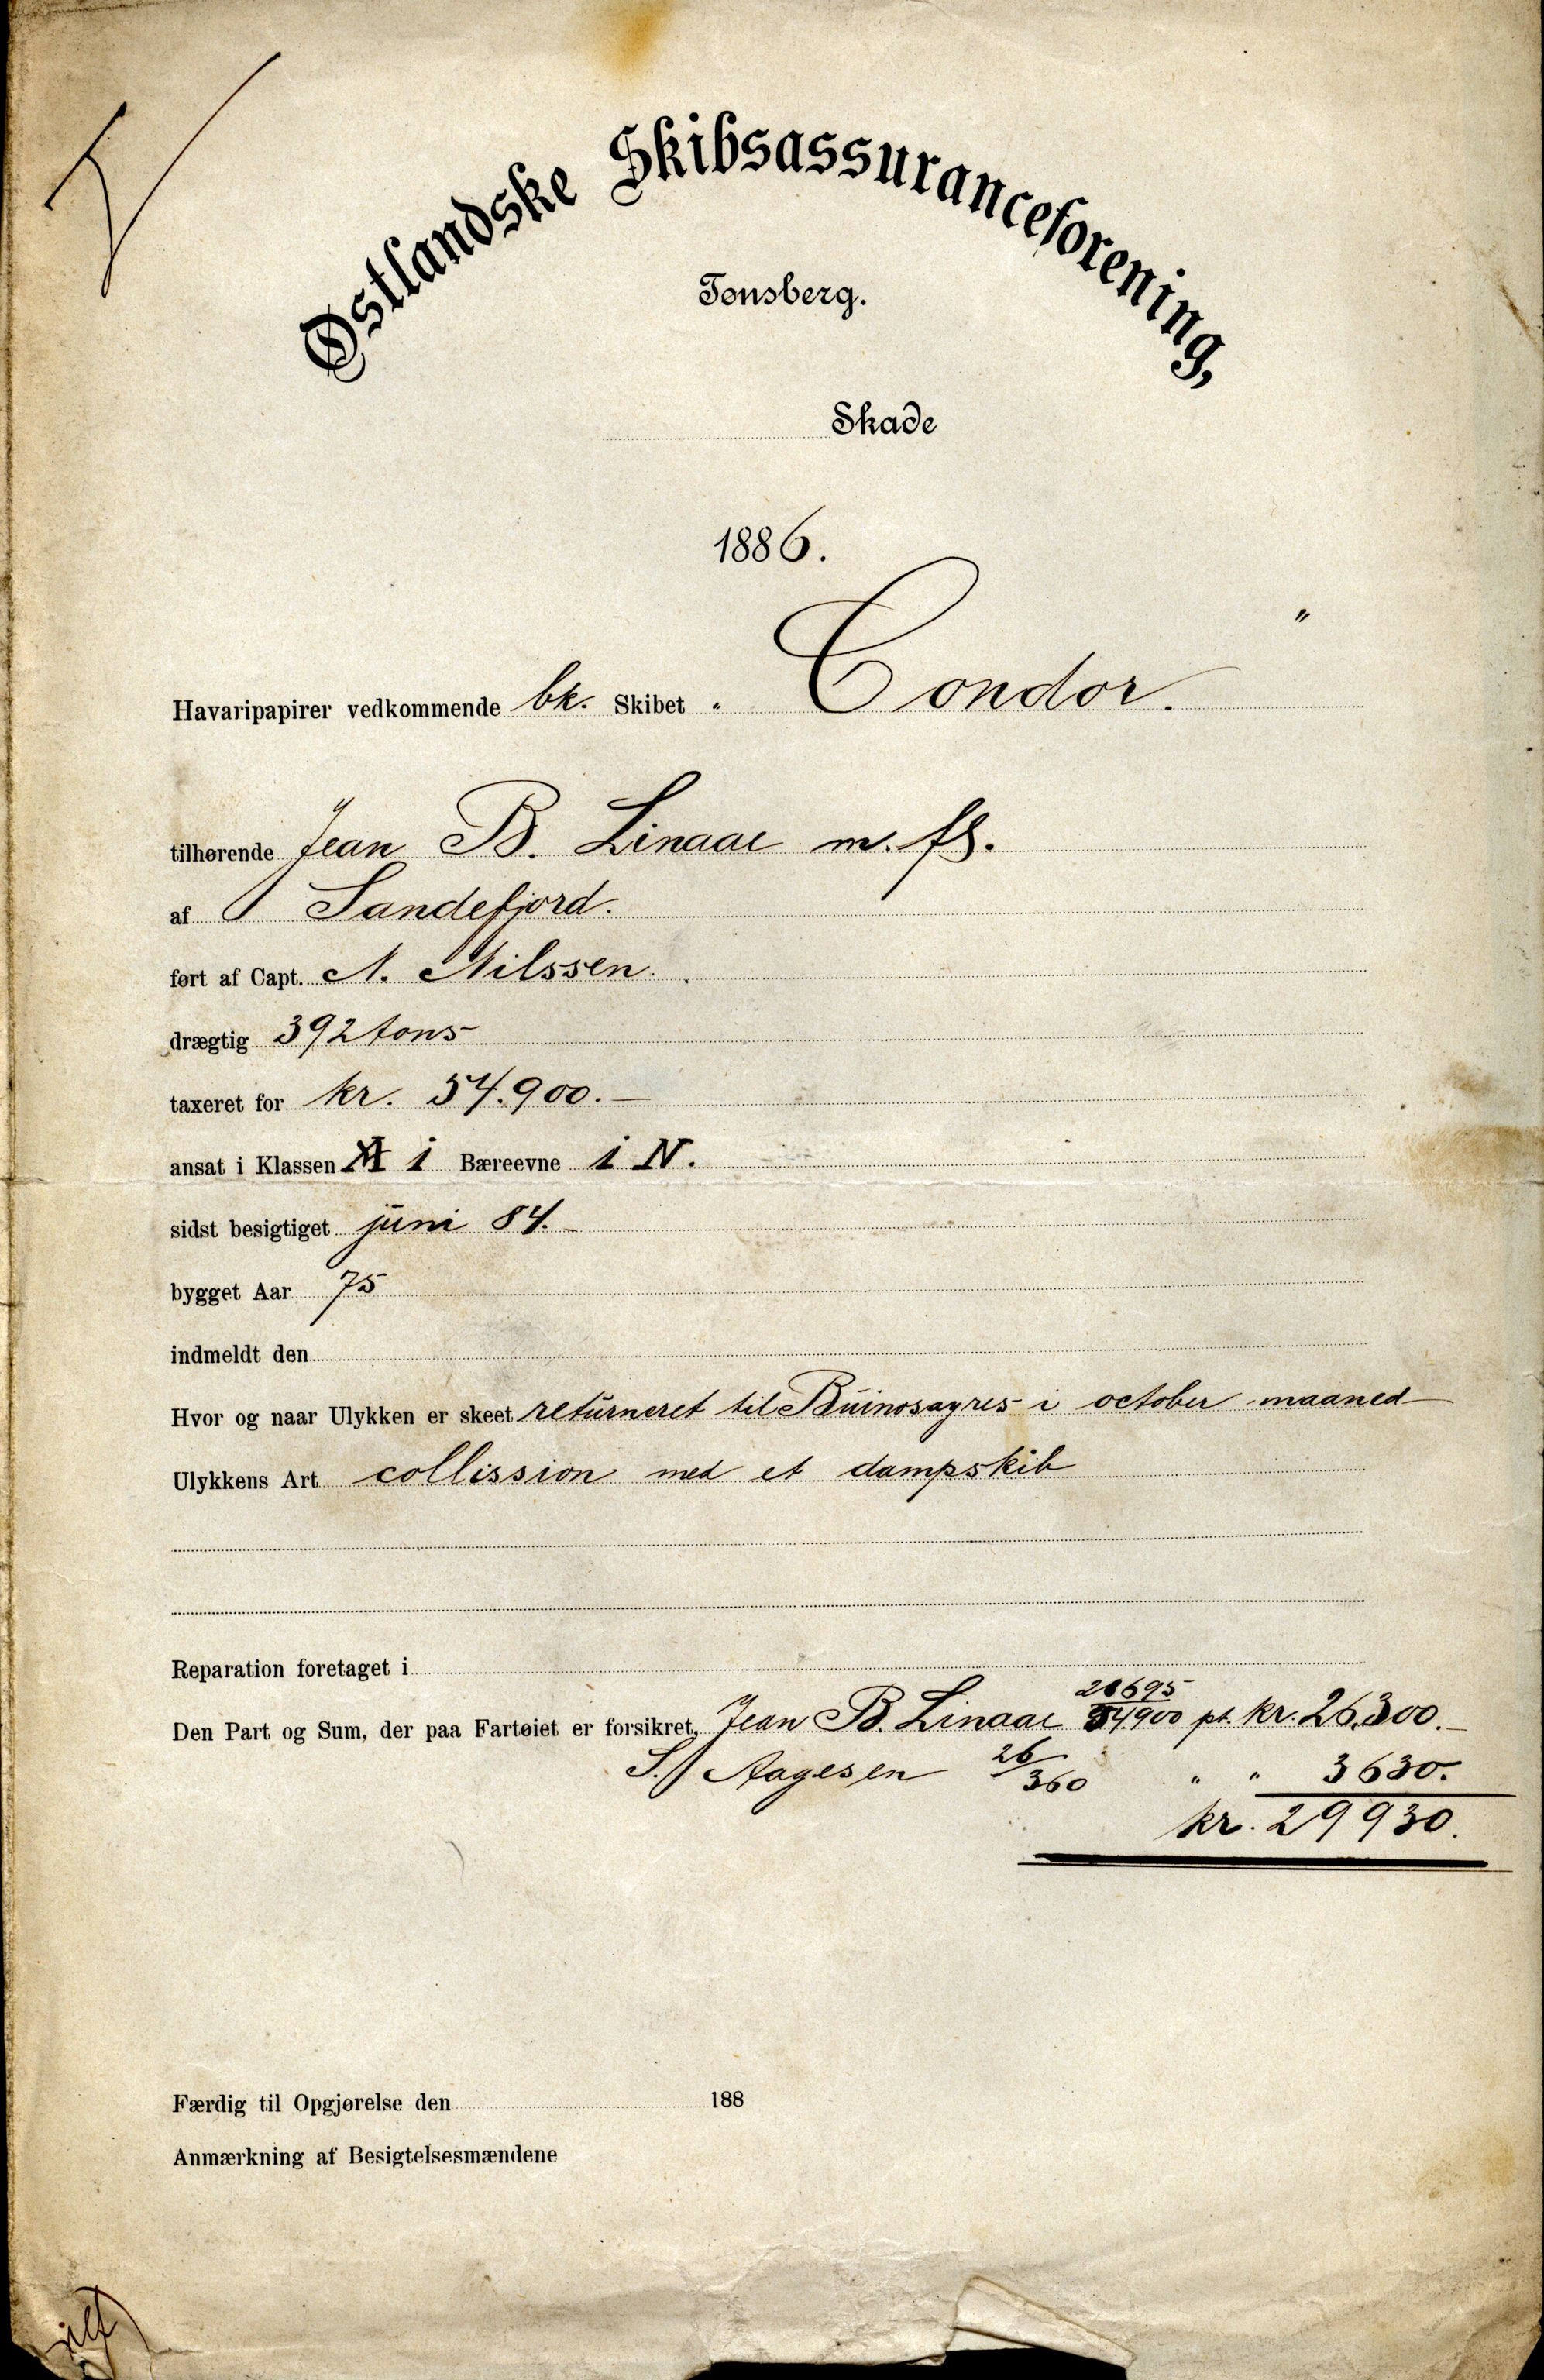 Østlandske Skibsassuranceforening,
Tønsberg.
Skade
1886.
Havaripapirer vedkommende bk. Skibet " Condor. "
tilhørende Jean B. Linaae m. fl.
af Sandefjord.
ført af Capt. N. Nilssen.
drægtig 392 tons
taxeret for kr. 54.900.—
ansat i Klassen A i Bæreevne i N.
sidst besigtiget juni 84.
bygget Aar 75
indmeldt den
Hvor og naar Ulykken er skeet returneret til Buinosayres i october maaned
Ulykkens Art collission med et dampskib
Reparation foretaget i
Den Part og Sum, der paa Fartøiet er forsikret, Jean B. Linaae 28695/54900 pt. kr. 26,300.—
S. Aagesen 26/360 " " 3630.
kr. 29930.
Færdig til Opgjørelse den 188
Anmærkning af Besigtelsesmændene